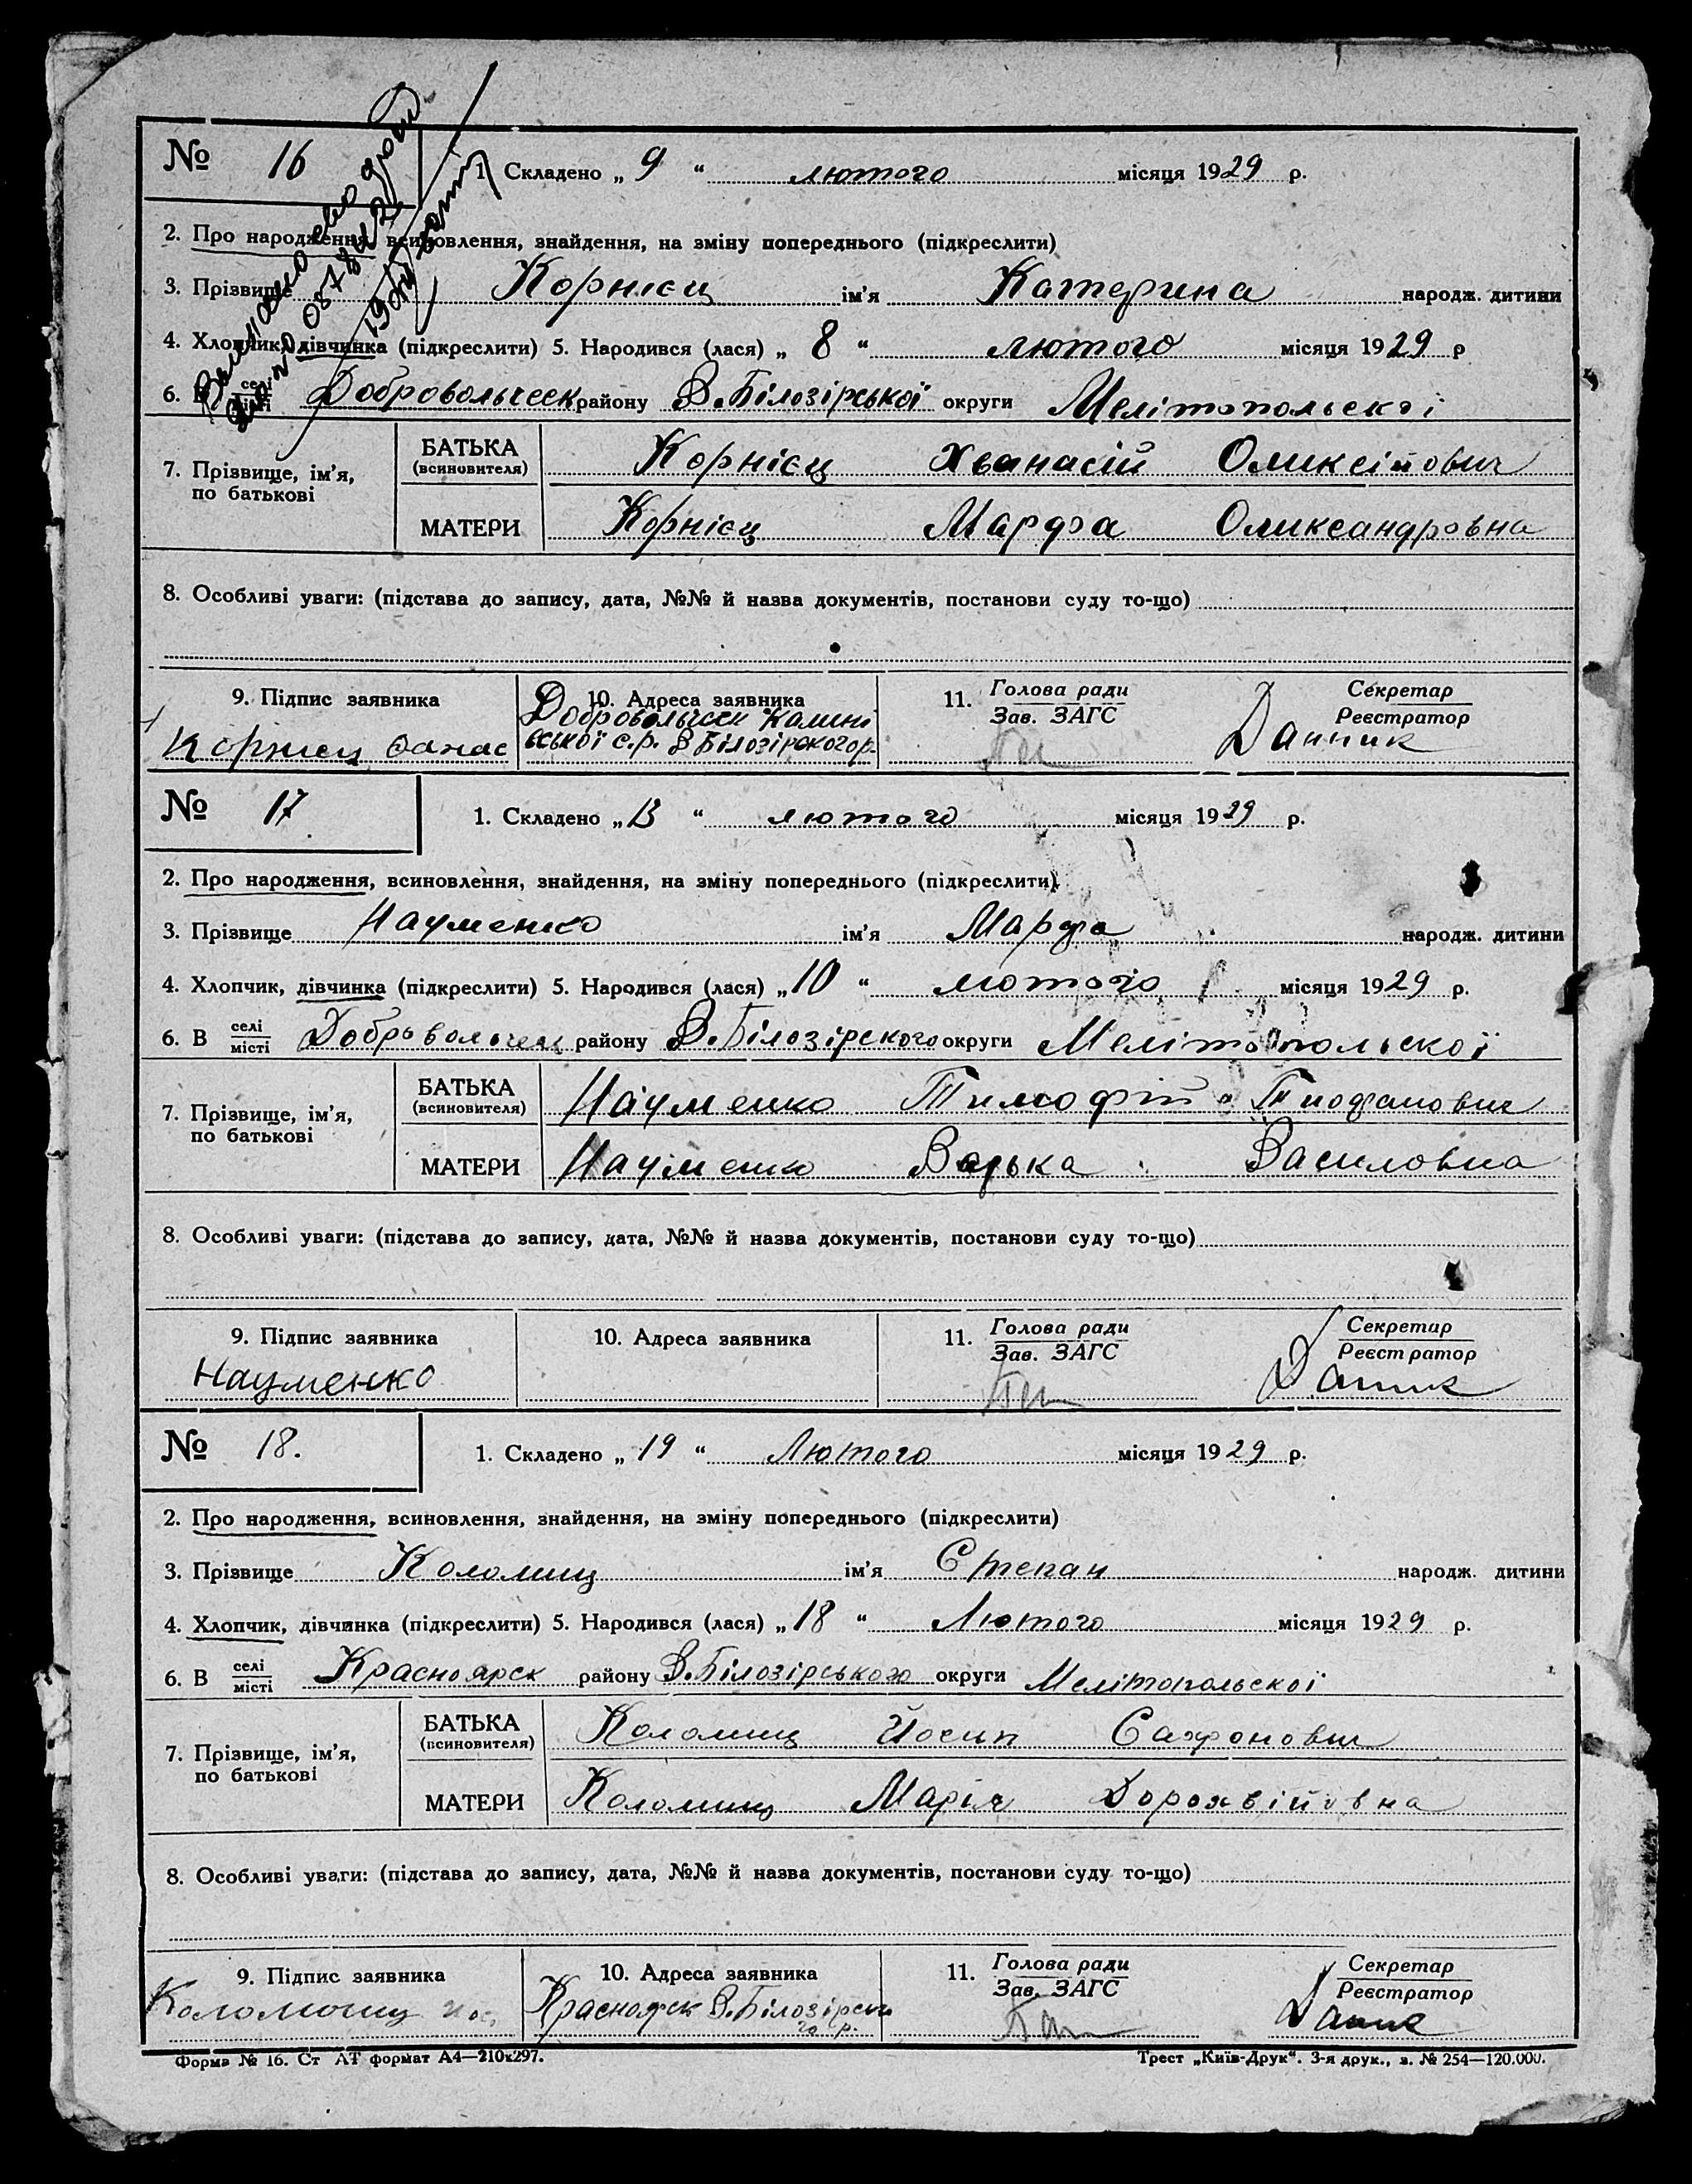 № 16
1. Складено „ 9 “ лютого місяця 1929 р.
2. Про народження, всиновлення, знайдення, на зміну попереднього (підкреслити)
3. Прізвище Корнієц ім'я Катерина народж. дитини
4. Хлопчик, дівчинка (підкреслити) 5. Народився (лася) „ 8 “ лютого місяця 1929 р
6. В селі місті Добровольческ району В.Білозірської округи Мелітопольскі
7. Прізвище, ім'я, по батькові
БАТЬКА (всиновителя) Корнієц Хванасій Оликсійович
МАТЕРИ Корнієц Марфа Олександровна
8. Особливі уваги: (підстава до запису, дата, №№ й назва документів, постанови суду то-що)
9. Підпис заявника
10. Адреса заявника
11. Голова ради Зав. ЗАГС
Секретар Реєстратор
Корниец Фанас
Добровольческ Калині
вської с.р. В Білозірского р.
Данник
№ 17
1. Складено „ 13 “ лютого місяця 1929 р.
2. Про народження, всиновлення, знайдення, на зміну попереднього (підкреслити)
3. Прізвище Науменко ім'я Марфа народж. дитини
4. Хлопчик, дівчинка (підкреслити) 5. Народився (лася) „ 10 “ лютого місяця 1929 р.
6. В селі місті Добровольчец району В.Білозірского округи Мелітопольскої
7. Прізвище, ім'я, по батькові
БАТЬКА (всиновителя) Науменко Тимофій
МАТЕРИ Науменко Варька Василовна
8. Особливі уваги: (підстава до запису, дата, №№ й назва документів, постанови суду то-що)
9. Підпис заявника
10. Адреса заявника
11. Голова ради Зав. ЗАГС
Секретар Реєстратор
Науменко
Данник
№ 18.
1. Складено „ 19 “ Лютого місяця 1929 р.
2. Про народження, всиновлення, знайдення, на зміну попереднього (підкреслити)
3. Прізвище Коломиц ім'я Степан народж. дитини
4. Хлопчик, дівчинка (підкреслити) 5. Народився (лася) „ 18 “ Лютого місяця 1929 р.
6. В селі місті Красноярск району В.Білозірського округи Мелітопольскої
7. Прізвище, ім'я, по батькові
БАТЬКА (всиновителя) Коломиц Йосип Сафонович
МАТЕРИ Коломиц Марія Дорохвійовна
8. Особливі уваги: (підстава до запису, дата, №№ й назва документів, постанови суду то-що)
9. Підпис заявника
10. Адреса заявника
11. Голова ради Зав. ЗАГС
Секретар Реєстратор
Коломоиц
Красноярск В.Білозірсько
го р.
Данник
Форма № 16. Ст АТ формат А4—210х297.
Трест „Київ-Друк“. 3-я друк., з. № 254—120.000.